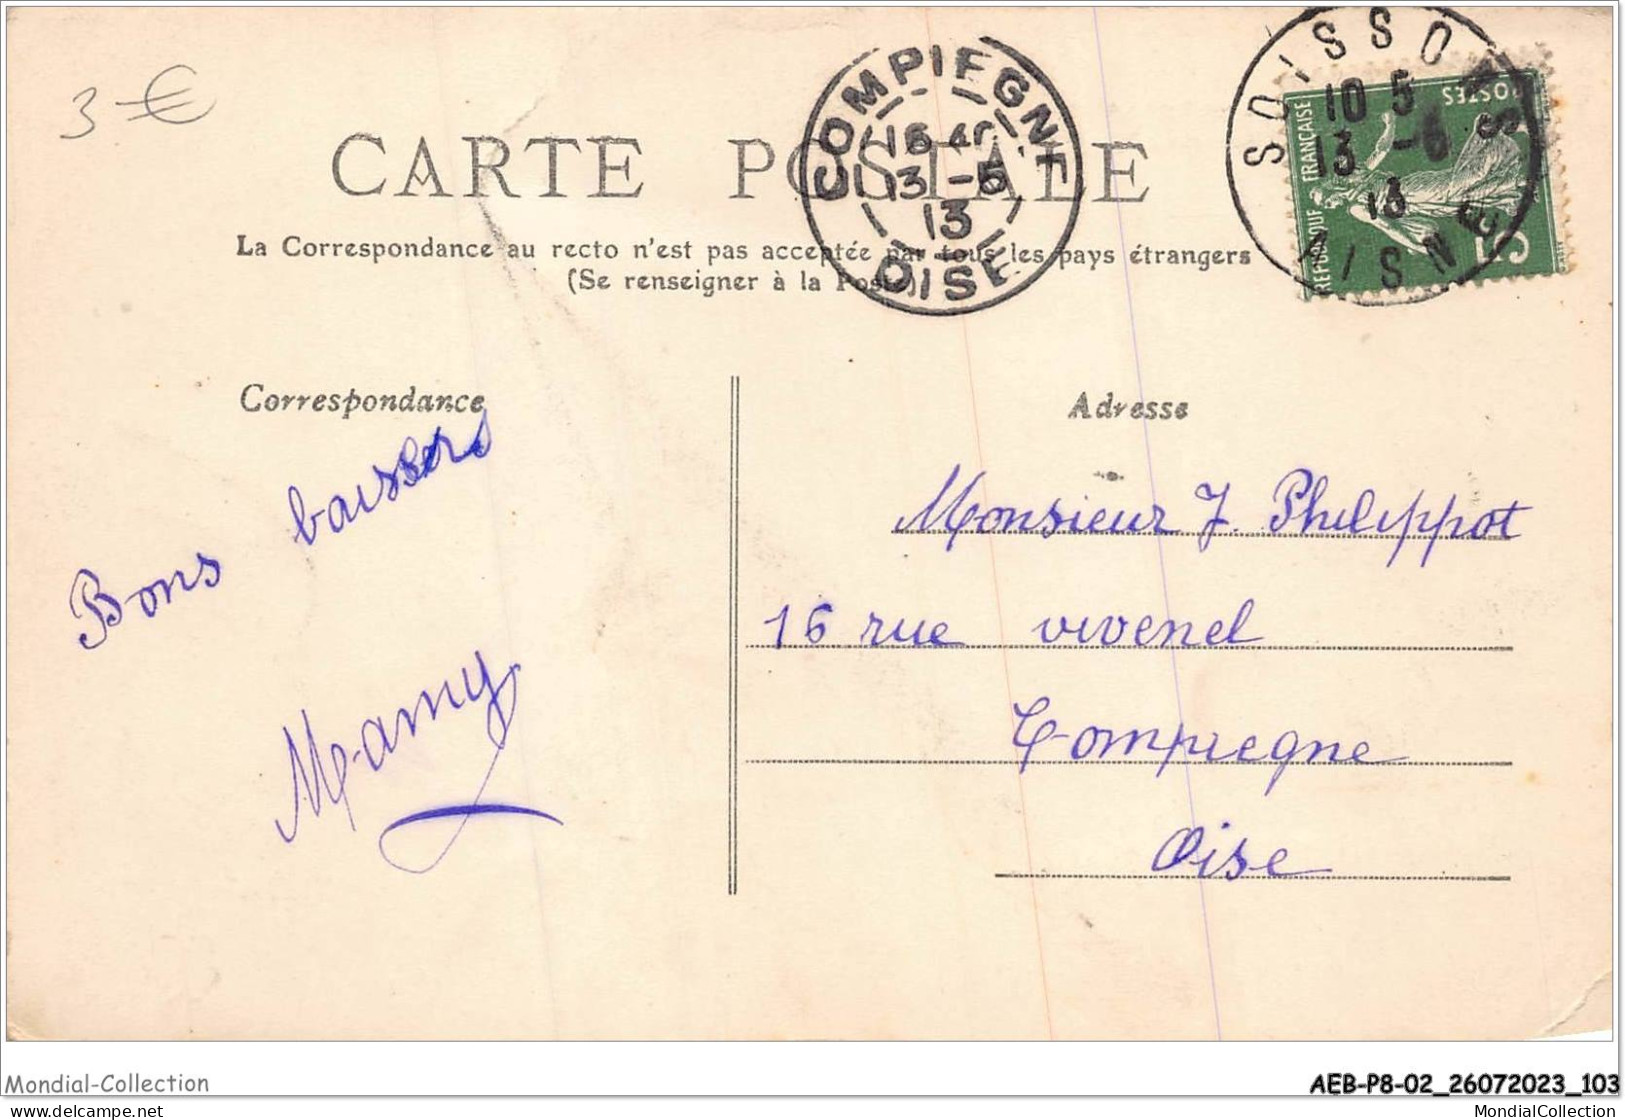 3 €
CARTE POSTALE
COMPIEGNE
16 40
13 -5
13
OISE
SOISSONS
10 5
13 -5
13
AISNE
REPUBLIQUE FRANÇAISE
POSTES
5c
La Correspondance au recto n'est pas acceptée par tous les pays étrangers
(Se renseigner à la Poste)
Correspondance
Adresse
Bons baisers
Mamy
Monsieur J. Philippot
16 rue vivenel
Compiegne
Oise
Mondial-Collection
AEB-P8-02_26072023_103
www.delcampe.net
MondialCollection